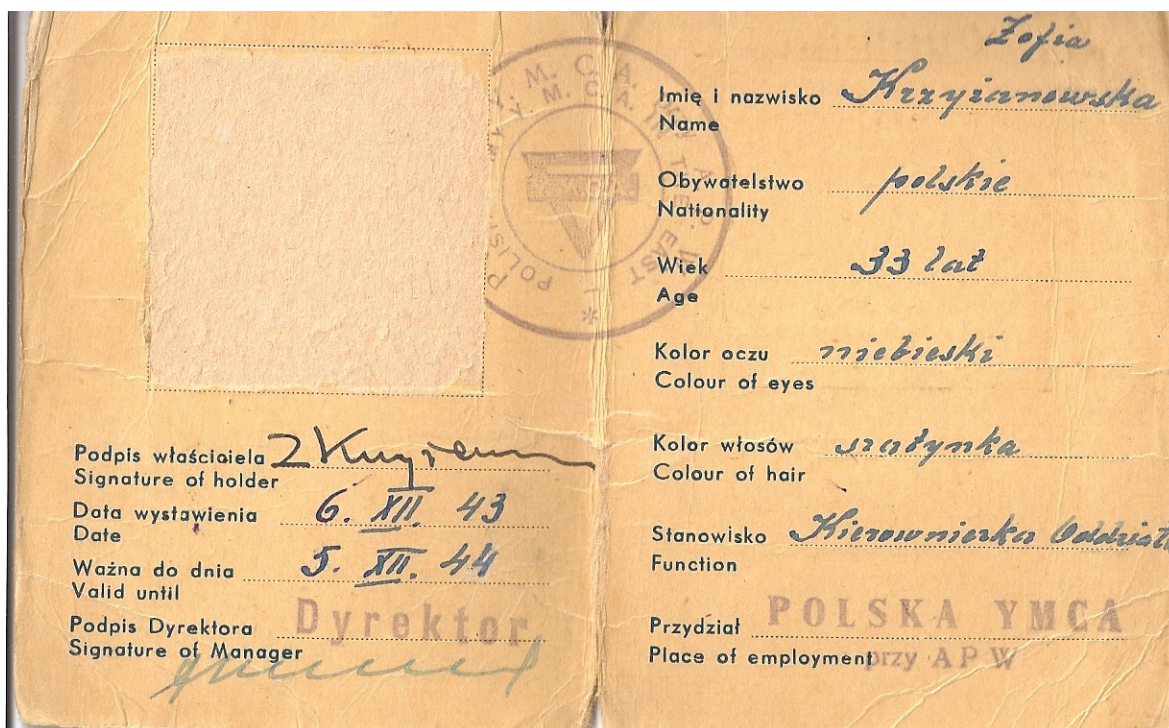 Podpis właściciela Z Krzyżan
Signature of holder
Data wystawienia 6. XII. 43
Date
Ważna do dnia 5. XII. 44
Valid until
Podpis Dyrektora Dyrektor
Signature of Manager
Y. M. C. A.
POLISH Y. M. C. A. IN THE EAST
Zofia
Imię i nazwisko Krzyżanowska
Name
Obywatelstwo polskie
Nationality
Wiek 33 lat
Age
Kolor oczu niebieski
Colour of eyes
Kolor włosów szatynka
Colour of hair
Stanowisko Kierowniczka Oddziału
Function
Przydział POLSKA YMCA
Place of employment przy APW